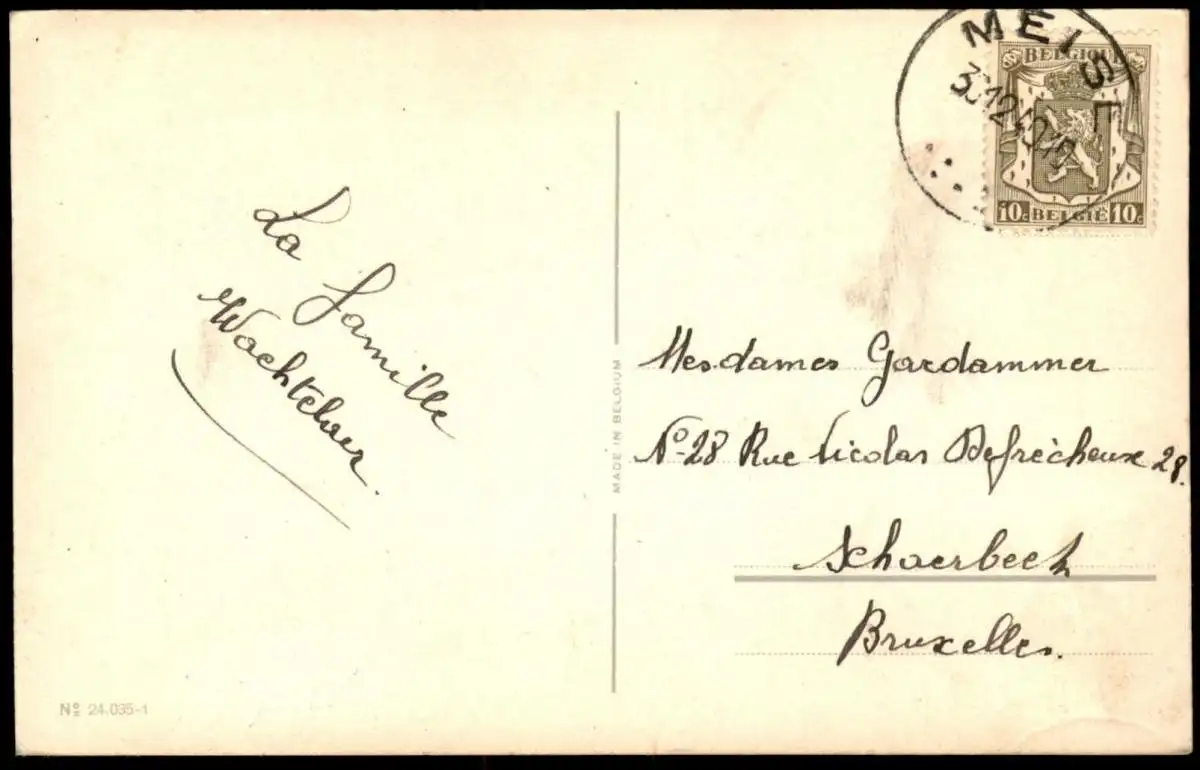 MEISE
BELGIQUE
10c BELGIË 10c
La famille
Wachtelaer.
MADE IN BELGIUM
Mesdames Gardammer
No-28 Rue Nicolas Defrècheux 28.
Schaerbeek
Bruxelles.
No 24.035-1